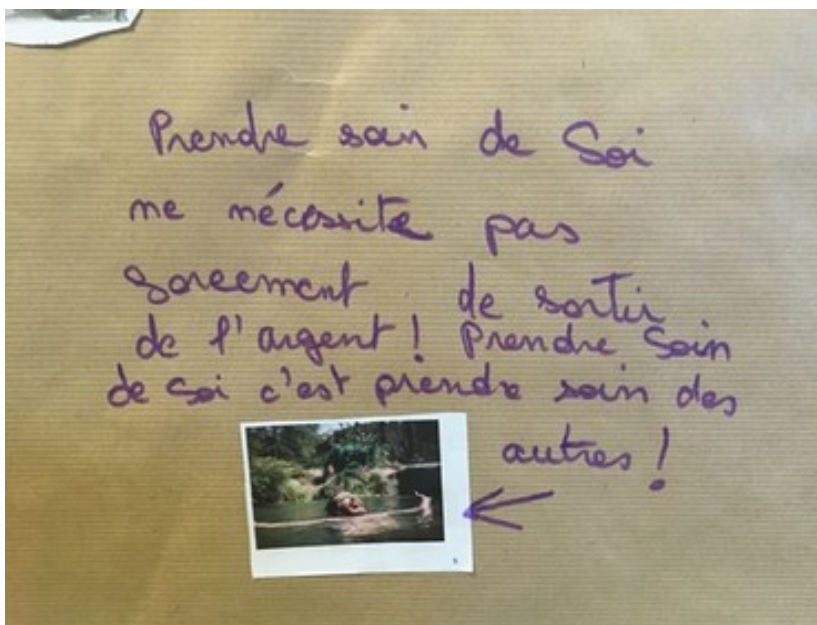 Prendre soin de Soi
ne nécessite pas
forcement de sortir
de l'argent ! Prendre Soin
de Soi c'est prendre soin des
autres !